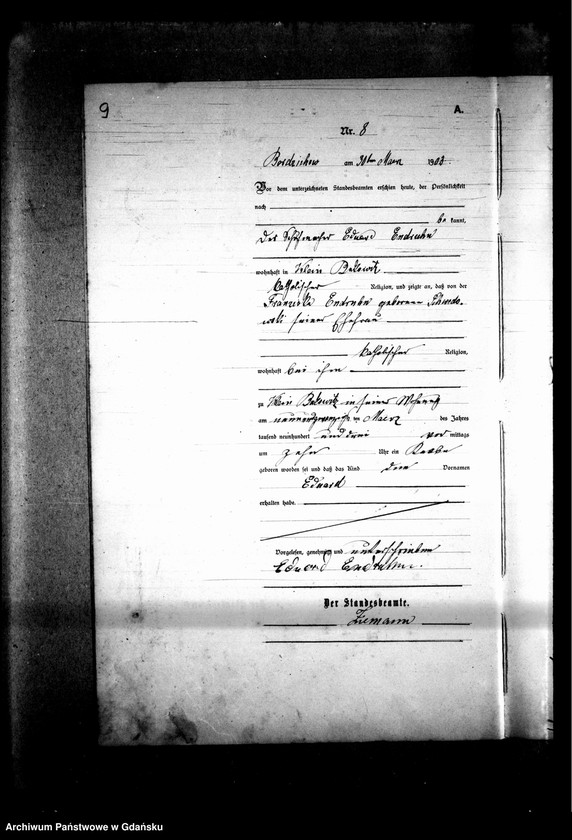 9
A.
Nr. 8
am März 1903.
Vor dem unterzeichneten Standesbeamten erschien heute, der Persönlichkeit
nach
be kannt,
der Eduard
wohnhaft in Klein
katholischer Religion, und zeigte an, daß von der
Franziska geborenen
seiner Ehefrau
katholischer Religion,
wohnhaft bei ihm
zu Klein in seiner Wohnung
am März des Jahres
tausend neunhundert und drei vor mittags
um zehn Uhr ein Knabe
geboren worden sei und daß das Kind den Vornamen
Eduard
erhalten habe.
Vorgelesen, genehmigt und unterschrieben
Eduard
Der Standesbeamte.
Ziemann
Archiwum Państwowe w Gdańsku